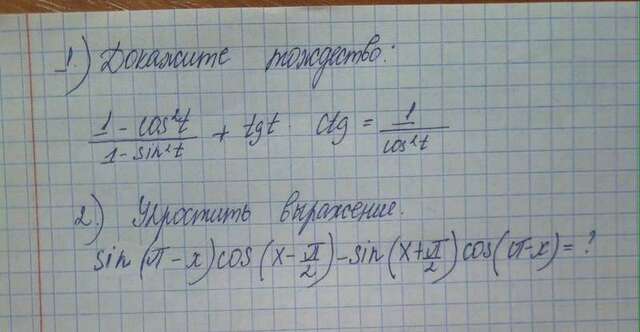 1.) Докажите тождество:
(1 - cos²t)/(1 - sin²t) + tgt · ctg = 1/cos²t
2.) Упростить выражение.
sin(π - x)cos(x - π/2) - sin(x + π/2)cos(π - x) = ?